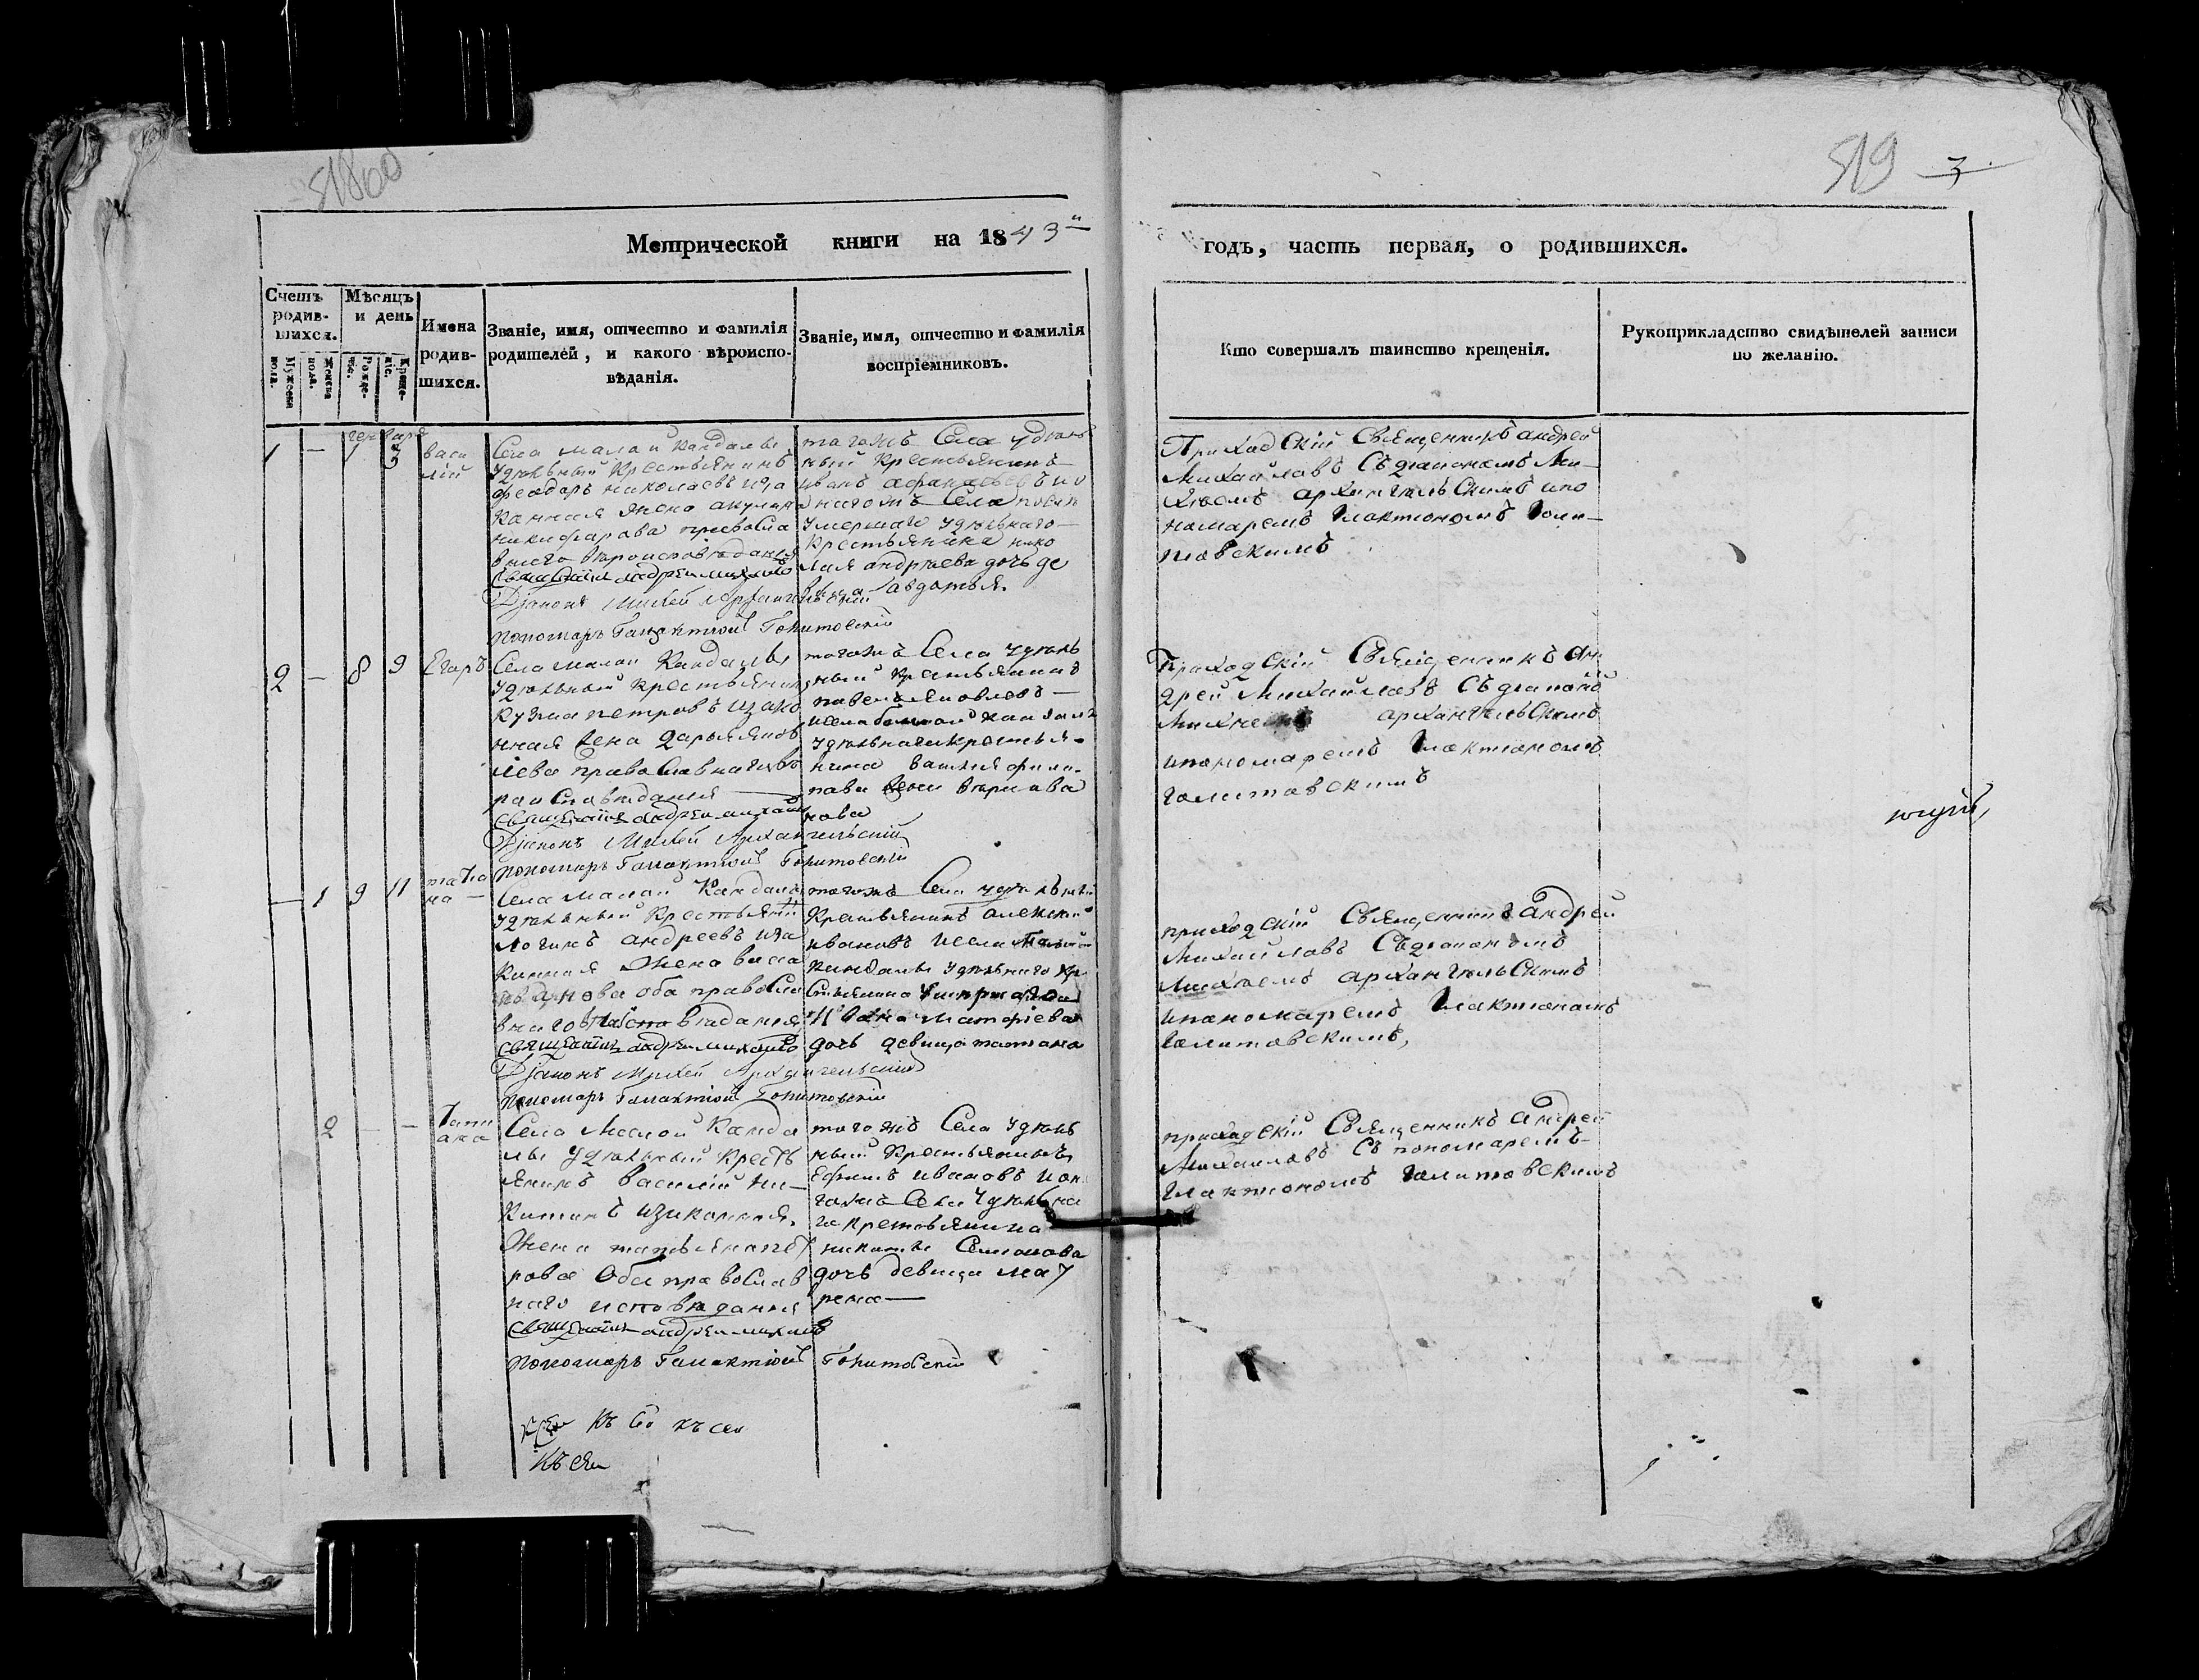 519 3
Метрической книги на 1843
годъ, часть первая, о родившихся.
Счетъ родив-шихся.
Мужеска пола.
Женска пола.
Мѣсяцъ и день
Рожде-нія.
Креще-нія.
Имена родив-шихся.
Званіе, имя, отчество и фамилія
родителей, и какого вѣроиспо-
вѣданія.
Званіе, имя, отчество и фамилія
воспріемниковъ.
Кто совершалъ таинство крещенія.
Рукоприкладство свидѣтелей записи
по желанію.
генваря
1 — 1 3
васи
лій
Села малай Кандалы
удѣльный Крестьянинъ
феодоръ николаевъ иза
конная жена акулина
никифарава православ
Священникъ андрей михайловъ
Діаконъ Михей Архангельскій
пономарь Галактіонъ Голитовскій
тагожъ Села удѣль
ный Крестьянинъ
иванъ афанасьевъ ио
умершаго удѣльнаго
Крестьянина нико
лая андреева дочь де
вица авдотья.
Приходскій Священникъ андрей
Михайлавъ Съ діакономъ Ми-
хѣемъ архангельскимъ ипо
намаремъ Галактіономъ Голи-
товскимъ
2 — 8 9 Егоръ
Села малай Кандалы
удѣльный крестьянинъ
Кузма петровъ изако
нная жена дарья яков
лева православнаговѣ
роисповѣданія
Священникъ андрей михайловъ
Діаконъ Михей Архангельскій
пономарь Галактіонъ Голитовскій
тагожъ Села удѣль
ный крестьянинъ
павелъ яковлевъ —
исела большой кандалы
удѣльнаго крестья-
нина василья фили-
пава жена
нова
Приходскій Священникъ Ан
дрей Михайлавъ Съ діаконо
Михеемъ архангельскимъ
ипономаремъ Галактіономъ
Голитавскимъ
— 1 9 11
татья
на —
Села малай Кандалы
удѣльный Крестьянин
Логинъ андреевъ иза
конная жена васа
оба православ
Священникъ андрей михайловъ
Діаконъ Михей Архангельскій
пономарь Галактіонъ Голитовскій
тогожъ Села удѣльный
Крестьянинъ алексѣй
ивановъ исела Малай
Кандалы удѣльнаго кр
дочь девица татьяна
приходскій Священникъ Андрей
Михайлавъ Съ діакономъ
Михѣемъ архангельскимъ
ипаномаремъ Галактіонамъ
Голитовскимъ,
2 — —
Тати
ана
Села Малой Канда
лы удѣльный Кресть
янинъ василій Ни-
Китинъ изаконная
Жена татьяна пет
рова Оба православ
наго исповѣданія
Священникъ андрей михайловъ
пономарь Галактіонъ Голитовскій
тогожъ Села удѣль
ный Крестьянинъ
Ефимъ ивановъ и то
гожъ Села удѣльна
го крестьянина
никиты Семенова
дочь девица мат
рена —
приходскій Священникъ Андрей
Михаиловъ Съ пономаремъ
Галактіономъ Голитовскимъ